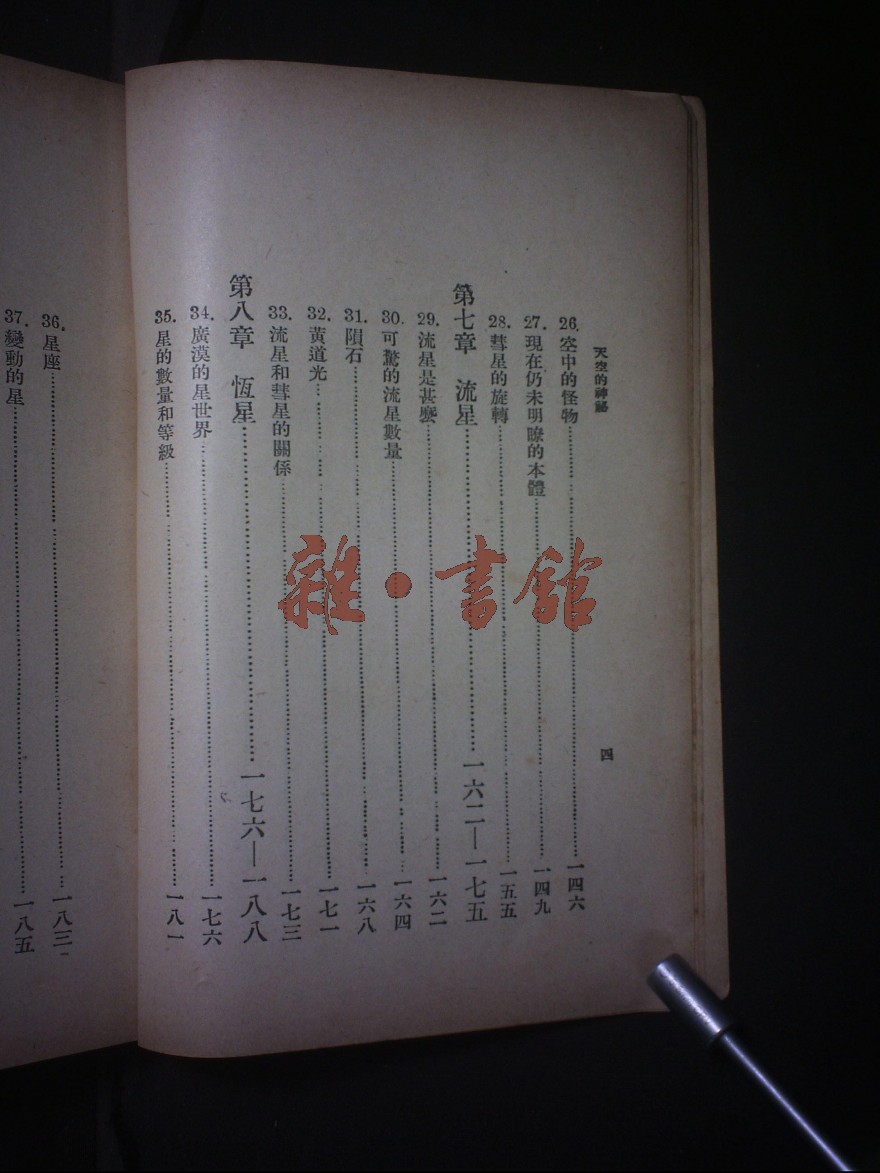 天空的神祕
四
26.空中的怪物……一四六
27.現在仍未明瞭的本體……一四九
28.彗星的旋轉……一五五
第七章 流星……一六二—一七五
29.流星是甚麼……一六二
30.可驚的流星數量……一六四
31.隕石……一六八
32.黃道光……一七一
33.流星和彗星的關係……一七三
第八章 恆星……一七六—一八八
34.廣漠的星世界……一七六
35.星的數量和等級……一八一
36.星座……一八三
37.變動的星……一八五
雜·書館